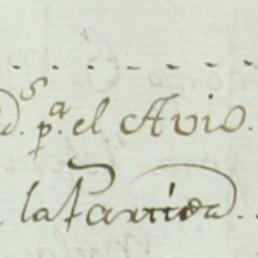 d.s p.a el Avio.
la Partida.